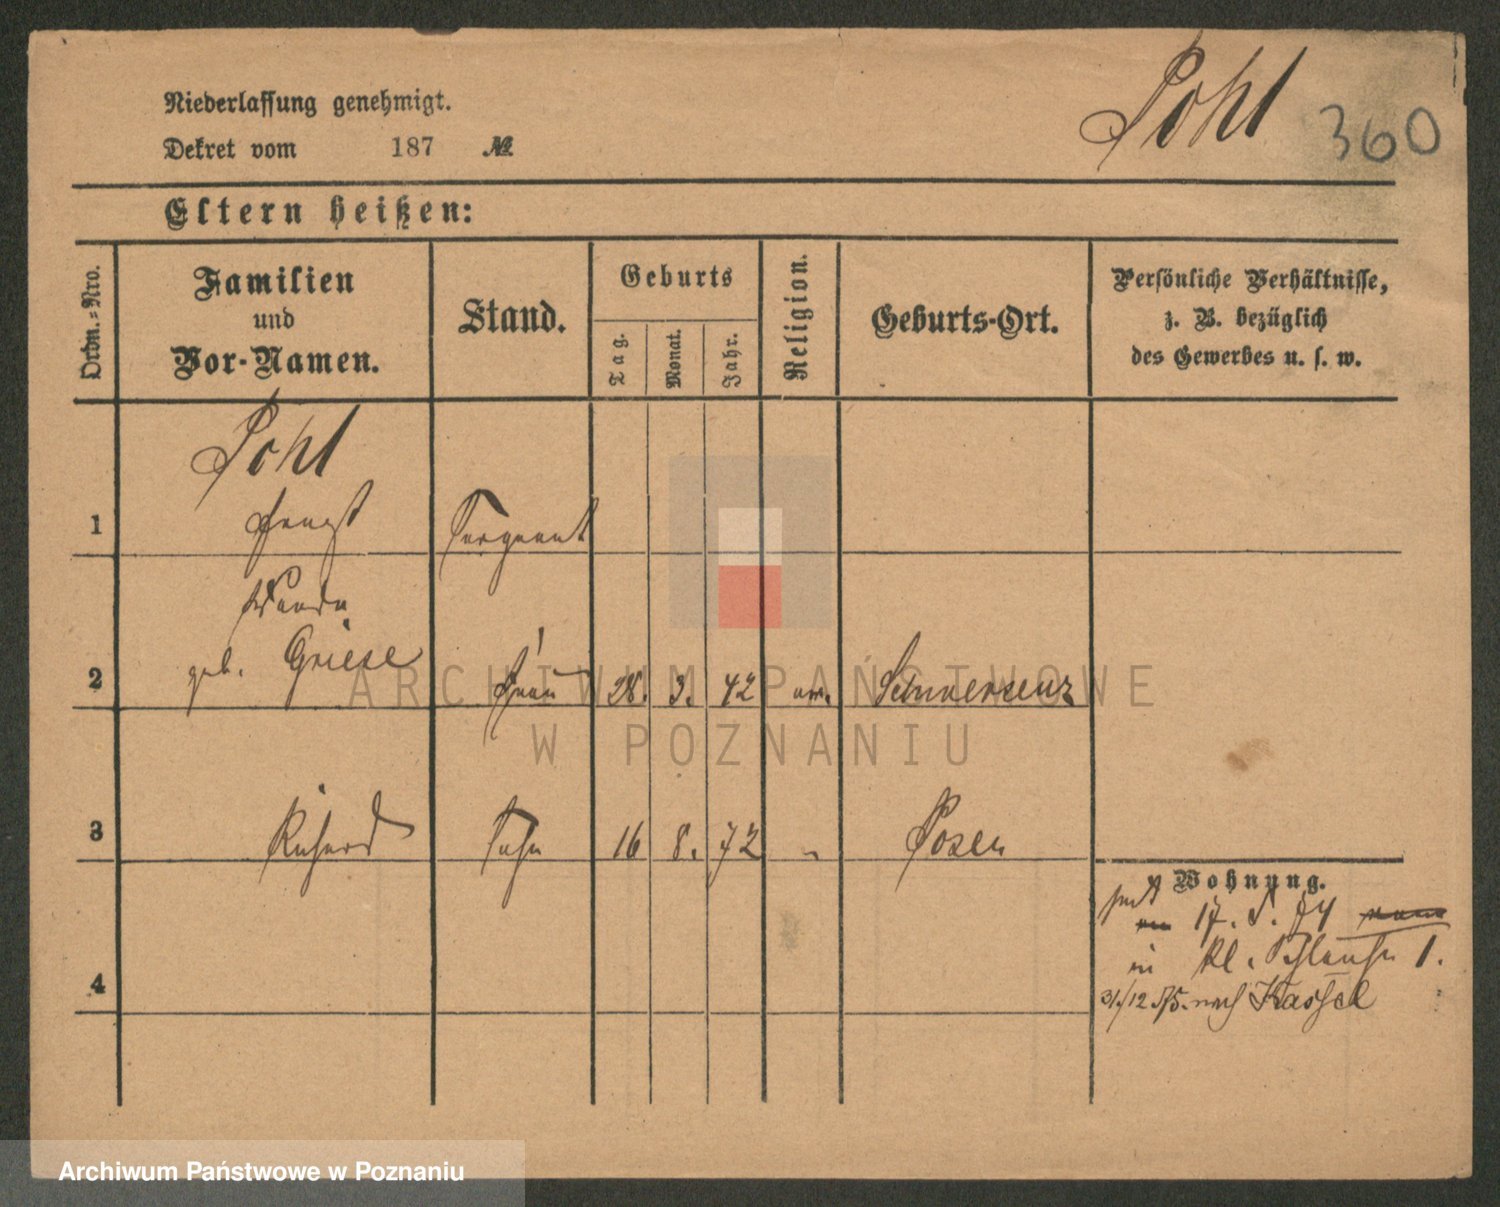 Pohl 360
Niederlassung genehmigt.
Dekret vom 187 №
Eltern heißen:
Ordn.-Nro.
Familien
und
Vor-Namen.
Stand.
Geburts
Tag.
Monat.
Jahr.
Religion.
Geburts-Ort.
Persönliche Verhältnisse,
z. B. bezüglich
des Gewerbes u. s. w.
Pohl
1 Sergeant
Wanda
geb. Griese
2 Frau 28. 3. 42 ev. Schwersenz
3 Richard Sohn 16 8. 72 " Posen
Wohnung.
17. 5. 74
in kl. 1.
31/12 75. nach Kassel
4
ARCHIWUM PAŃSTWOWE
W POZNANIU
Archiwum Państwowe w Poznaniu